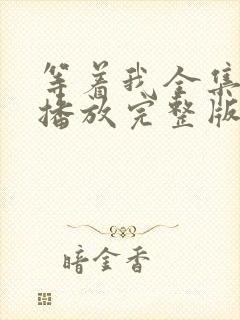 等着我全集
播放完整版
暗金香